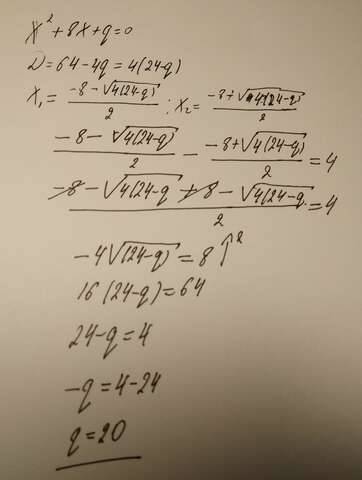 x² + 8x + q = 0
D = 64 - 4q = 4(24-q)
x₁ = (-8 - √(4(24-q)))/2 ; x₂ = (-8 + √(4(24-q)))/2
(-8 - √(4(24-q)))/2 - (-8 + √(4(24-q)))/2 = 4
(-8 - √(4(24-q) + 8 - √(4(24-q))/2 = 4
-4√(24-q) = 8 ↑²
16(24-q) = 64
24-q = 4
-q = 4-24
q = 20